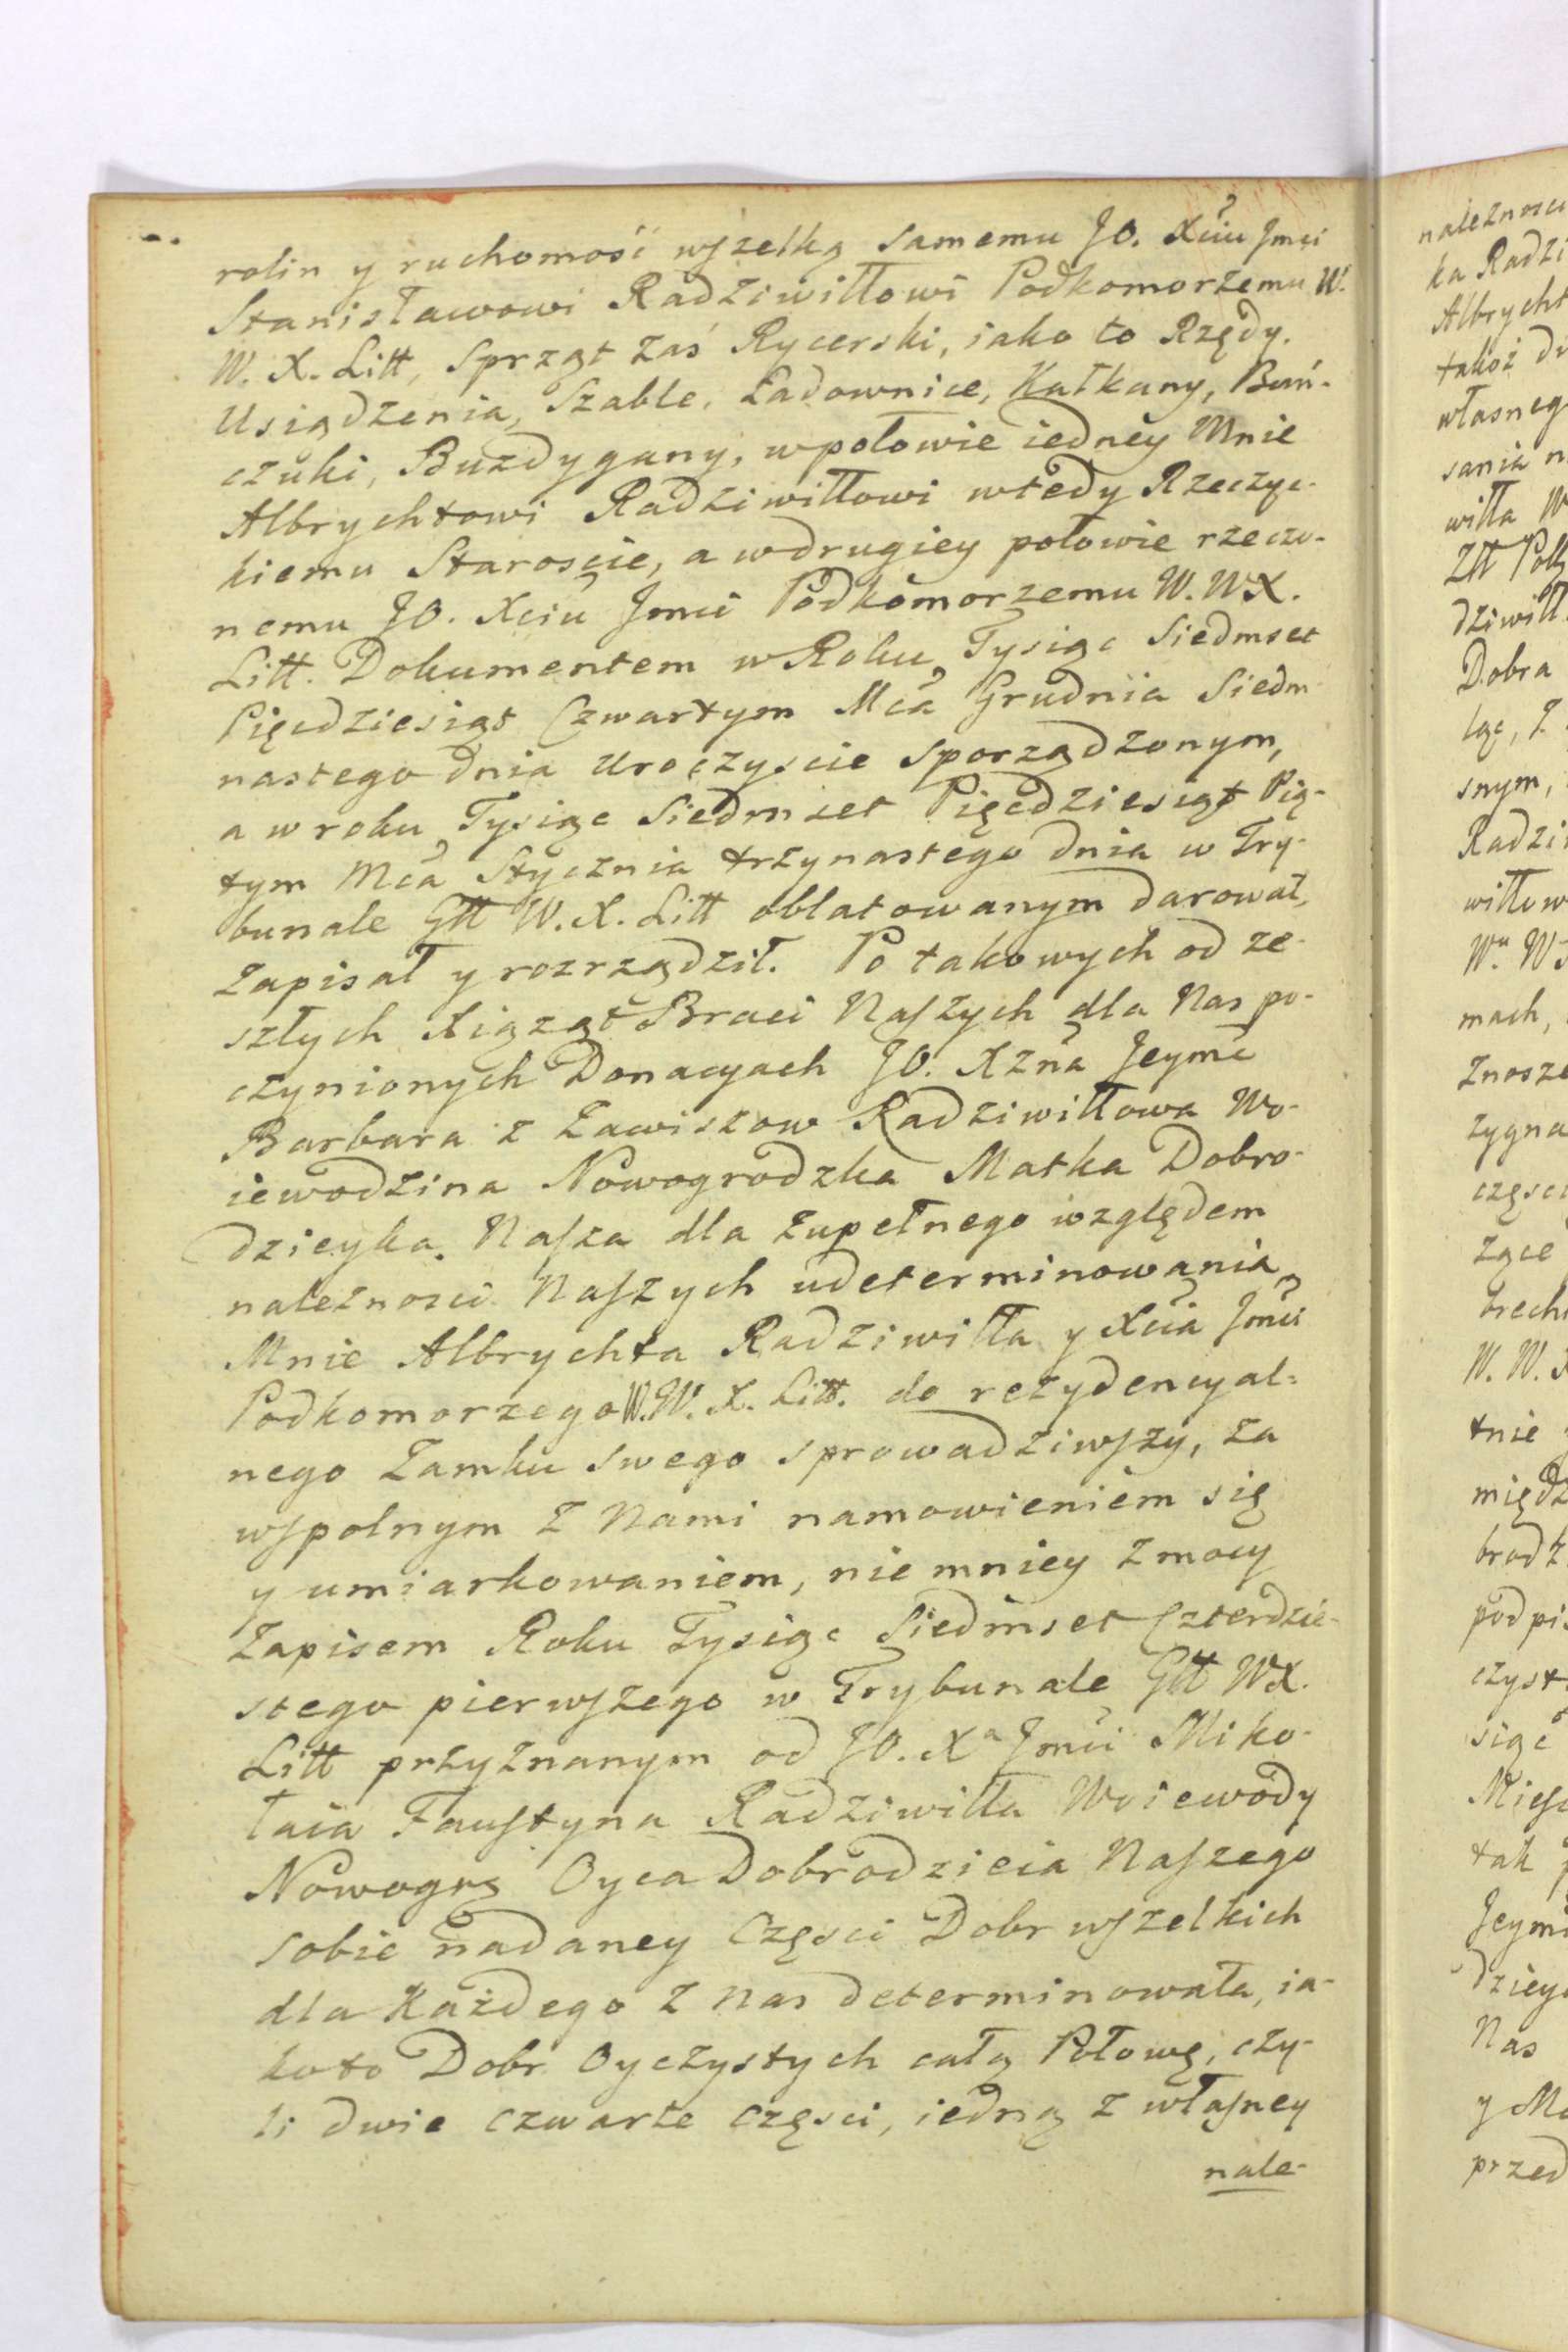 rolin y ruchomość wszelką samemu JO. Xciu Jmci
Stanisławowi Radziwiłłowi Podkomorzemu W.
W. X. Litt, Sprzęt zaś Rycerski, iako to Rzędy.
Usiądzenia, Szable, Ładownice, Kałkany, Buń-
czuki, Buzdygany, w połowie iedney Mnie
Albrychtowi Radziwiłłowi wtedy Rzeczyc-
kiemu Staroscie, a w drugiey połowie rzeczo-
nemu JO. Xciu Jmci Podkomorzemu W. WX.
Litt. Dokumentem w Roku Tysiąc Siedmset
Pięcdziesiąt Czwartym Mca Grudnia Siedm-
nastego dnia Uroczyscie sporządzonym,
a w roku Tysiąc Siedmset Pięcdziesiąt Pią-
tym Mca Stycznia trzynastego dnia w Try-
bunale Głł W. X. Litt oblatowanym darował,
zapisał y rozrządził. Po takowych od ze-
szłych Xiąząt Braci Naszych dla Nas po-
czynionych Donacyach JO. Xzna Jeymć
Barbara z Zawiszow Radziwiłłowa Wo-
iewodzina Nowogrodzka Matka Dobro-
dzieyka Nasza dla zupełnego względem
należnosci Naszych udeterminowania
Mnie Albrychta Radziwiłła y Xcia Jmci
Podkomorzego W. W. X. Litt. do rezydencyal=
nego Zamku swego sprowadziwszy, za
wspolnym z Nami namowieniem się
y umiarkowaniem, nie mniey z mocy
Zapisem Roku Tysiąc Siedmset Czterdzie-
stego pierwszego w Trybunale Głł WX.
Litt przyznanym od JO. Xa Jmci Miko-
łaia Faustyna Radziwiłła Woiewody
Nowogrg Oyca Dobrodzieia Naszego
sobie nadaney Częsci Dobr wszelkich
dla Każdego z nas determinowała, ia-
ko to Dobr Oyczystych całą Połowę, czy-
li dwie czwarte częsci, iedną z własney
nale-
należnosci
ka Radzi
Albrycht
takoż dr
własneg
sania n
wiłła W
Złł Poll
dziwiłł
Dobra
snym,
Radzi
wiłłow
mach,
znosze
zygna
częsci
żące
brech
W. W. X
tnie
międz
brodz
podpis
czyst
siąc
Miesc
tak
Jeym
dziey
Nas
y Ma
przed